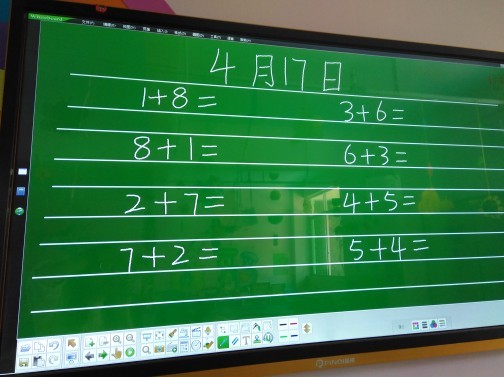 4月17日
1+8= 3+6=
8+1= 6+3=
2+7= 4+5=
7+2= 5+4=